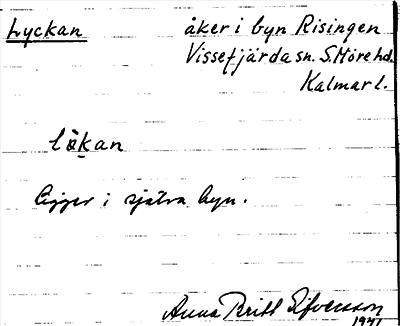 Lyckan
åker i byn Risingen
Vissefjärda sn. S. Möre hd.
Kalmar l.
ligger i själva byn.
Anna Britt Elfversson
1941